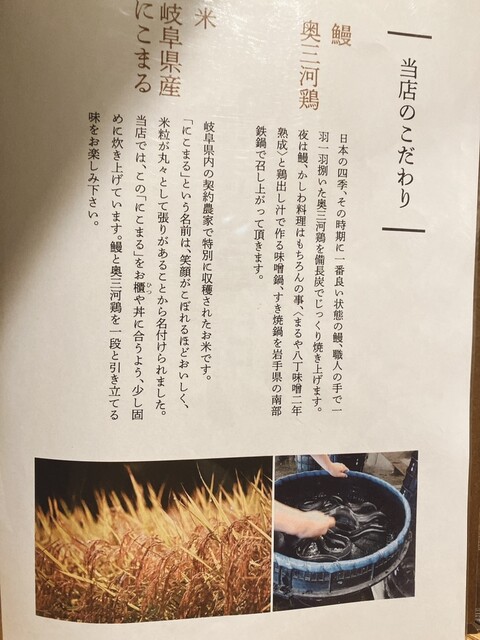 当店のこだわり
鰻
奥三河鶏
日本の四季、その時期に一番良い状態の鰻、職人の手で一
羽一羽捌いた奥三河鶏を備長炭でじっくり焼き上げます。
夜は鰻、かしわ料理はもちろんの事、〈まるや八丁味噌二年
熟成〉と鶏出し汁で作る味噌鍋、すき焼鍋を岩手県の南部
鉄鍋で召し上がって頂きます。
米
岐阜県産
にこまる
岐阜県内の契約農家で特別に収穫されたお米です。
「にこまる」という名前は、笑顔がこぼれるほどおいしく、
米粒が丸々として張りがあることから名付けられました。
当店では、この「にこまる」をお櫃や丼に合うよう、少し固
ひつ
めに炊き上げています。鰻と奥三河鶏を一段と引き立てる
味をお楽しみ下さい。